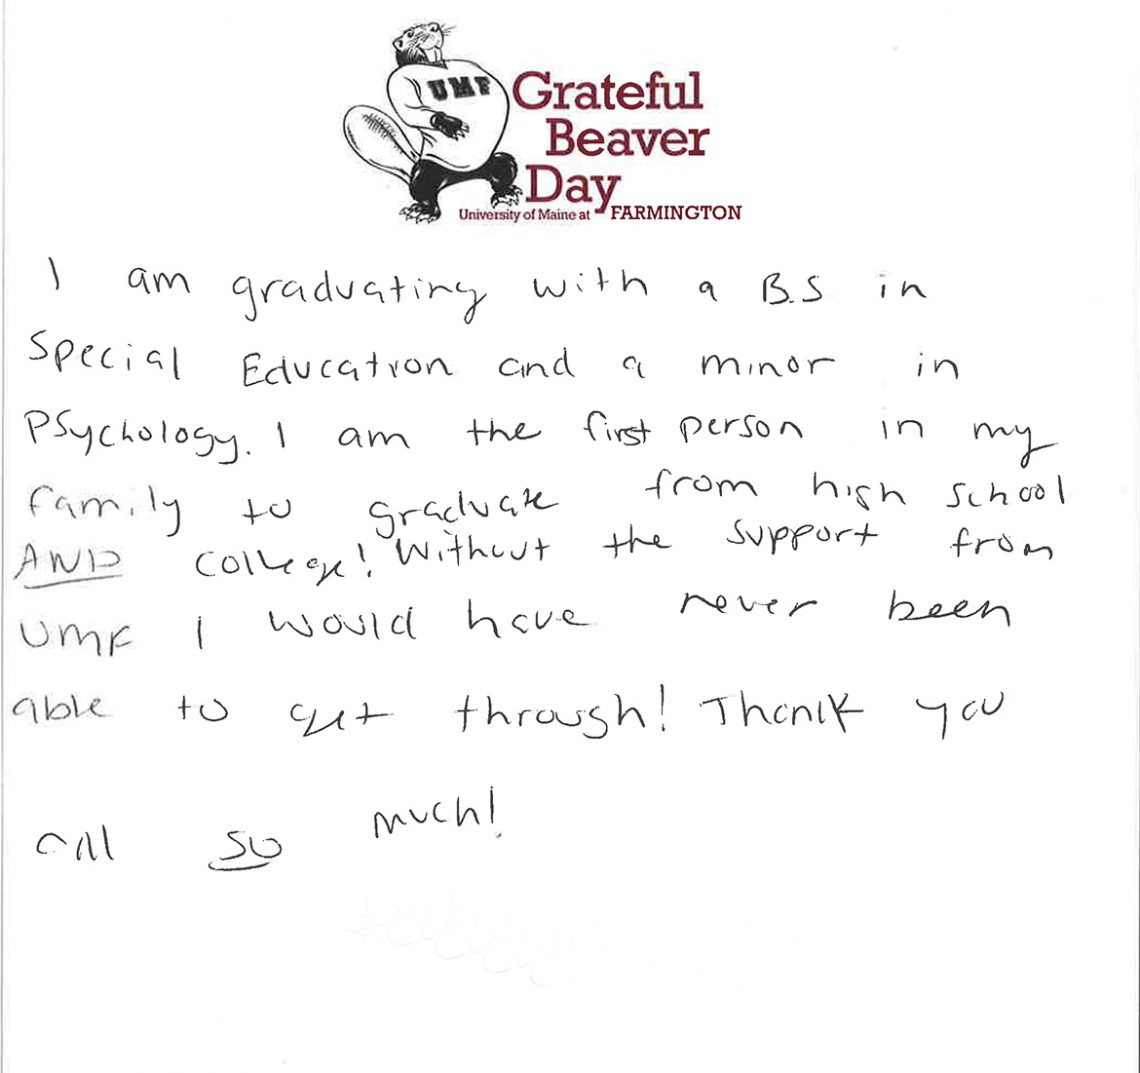 UMF
Grateful
Beaver
Day
University of Maine at FARMINGTON
I am graduating with a B.S in
Special Education and a minor in
Psychology. I am the first person in my
family to graduate from high school
AND college! Without the support from
UMF I would have never been
able to get through! Thank you
all so much!